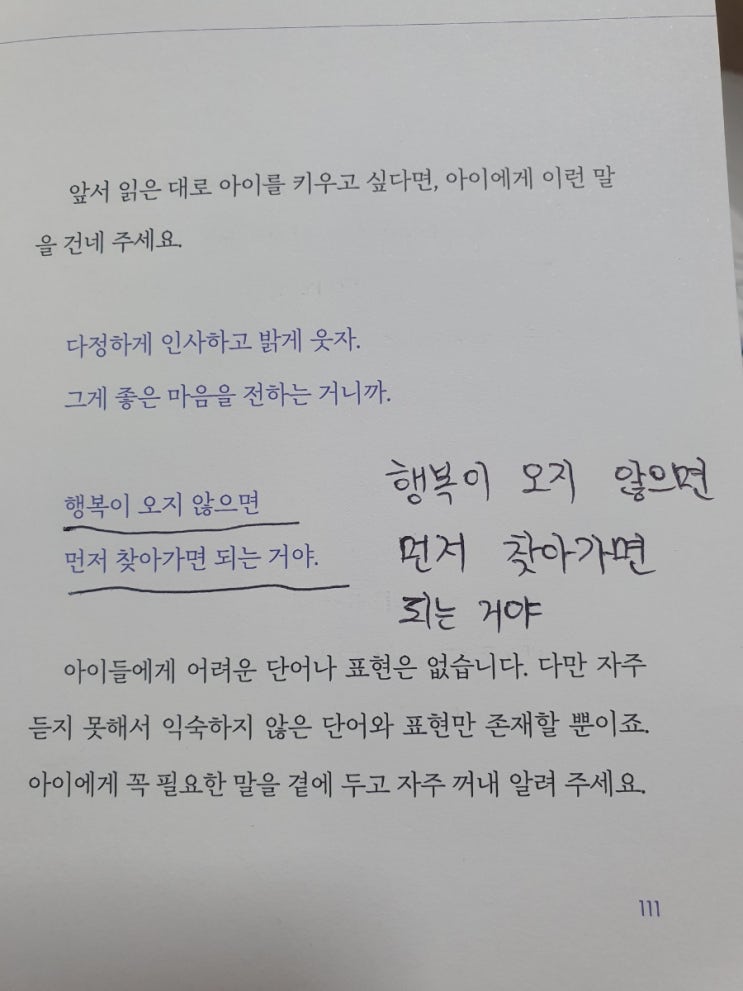 앞서 읽은 대로 아이를 키우고 싶다면, 아이에게 이런 말
을 건네 주세요.
다정하게 인사하고 밝게 웃자.
그게 좋은 마음을 전하는 거니까.
행복이 오지 않으면
먼저 찾아가면 되는 거야.
행복이 오지 않으면
먼저 찾아가면
되는 거야
아이들에게 어려운 단어나 표현은 없습니다. 다만 자주
듣지 못해서 익숙하지 않은 단어와 표현만 존재할 뿐이죠.
아이에게 꼭 필요한 말을 곁에 두고 자주 꺼내 알려 주세요.
111